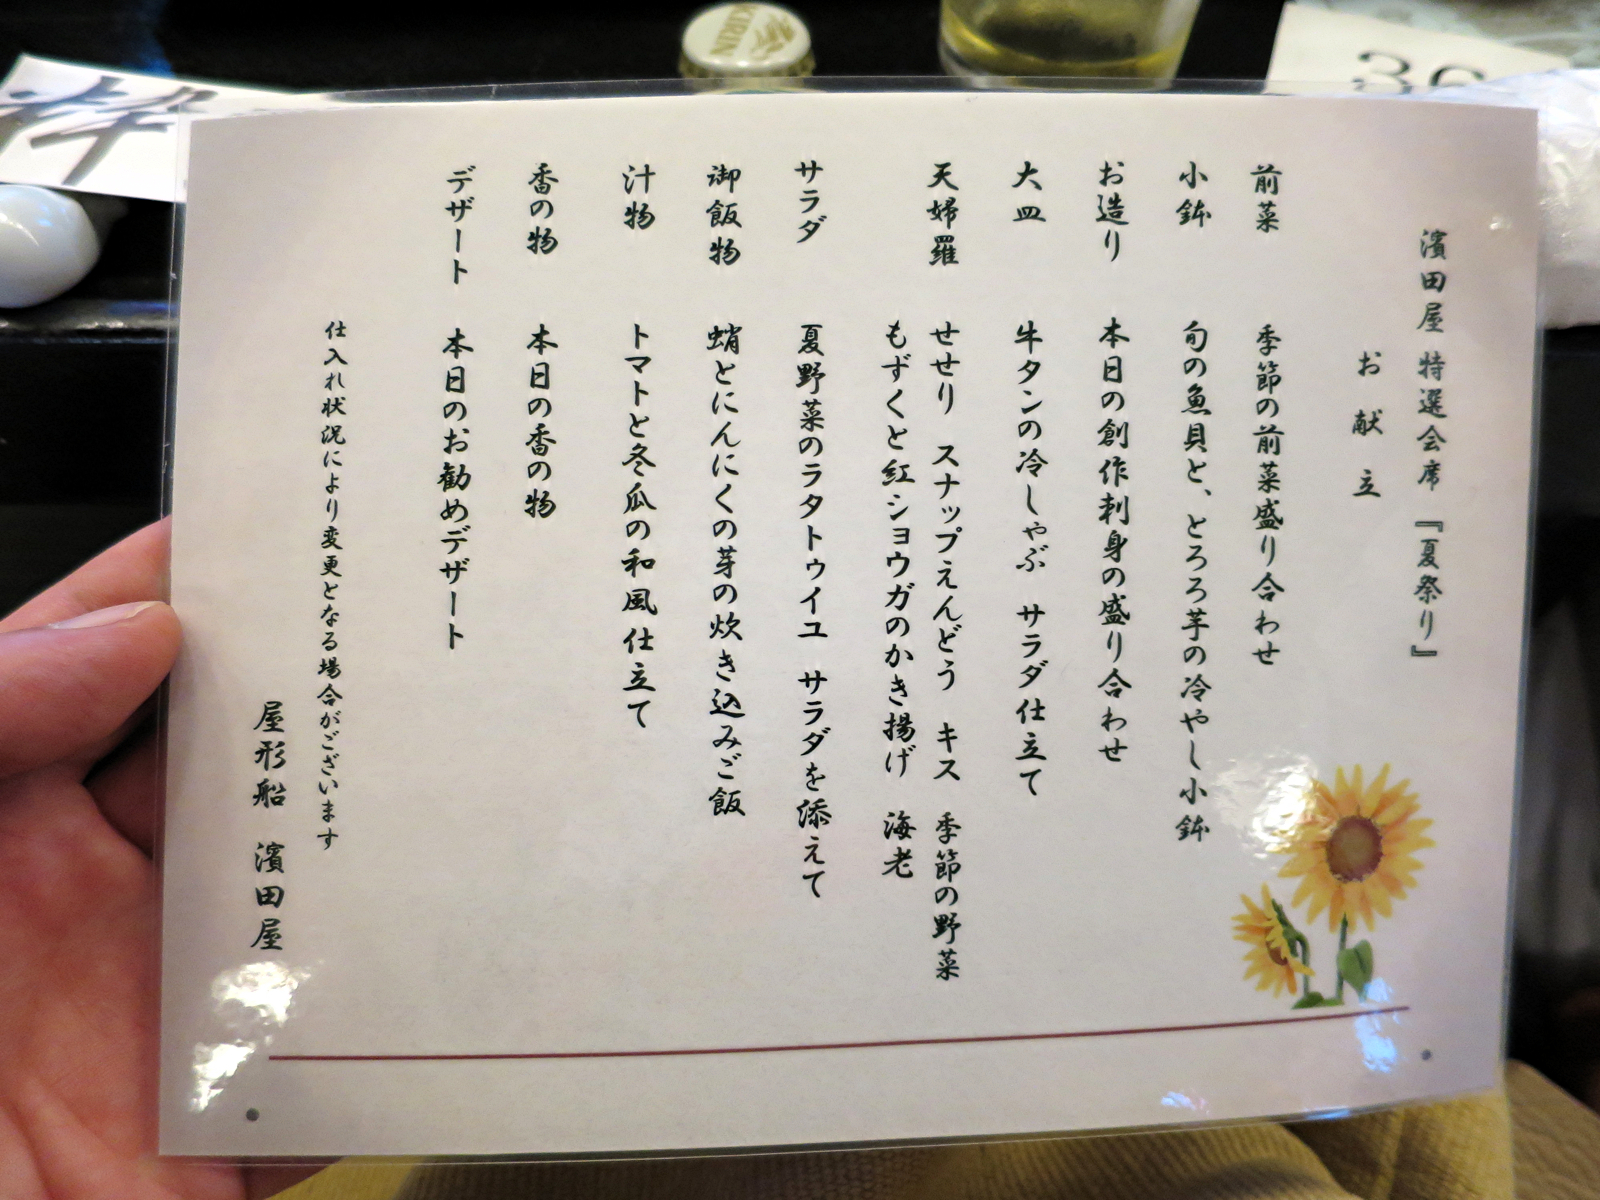 濱田屋 特選会席『夏祭り』
お献立
前菜 季節の前菜盛り合わせ
小鉢 旬の魚貝と、とろろ芋の冷やし小鉢
お造り 本日の創作刺身の盛り合わせ
大皿 牛タンの冷しゃぶ サラダ仕立て
天婦羅 せせり スナップえんどう キス 季節の野菜
もずくと紅ショウガのかき揚げ 海老
サラダ 夏野菜のラタトゥイユ サラダを添えて
御飯物 蛸とにんにくの芽の炊き込みご飯
汁物 トマトと冬瓜の和風仕立て
香の物 本日の香の物
デザート 本日のお勧めデザート
仕入れ状況により変更となる場合がございます
屋形船 濱田屋
KIRIN
36
粋